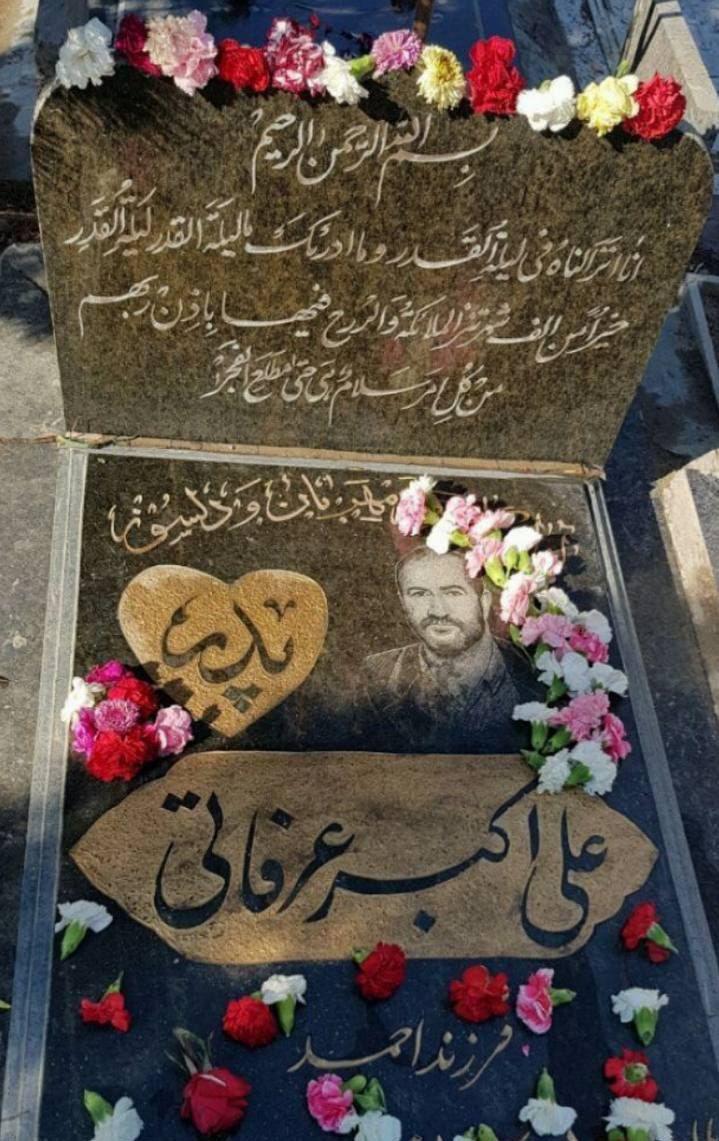 بسم الله الرحمن الرحیم
انا انزلناه فی لیلة القدر و ما ادریک ما لیلة القدر لیلة القدر
خیر من الف شهر تنزل الملائکة والروح فیها باذن ربهم
من کل امر سلام هی حتی مطلع الفجر
مهربان و دلسوز
پدر
علی اکبر عرفاتی
فرزند احمد